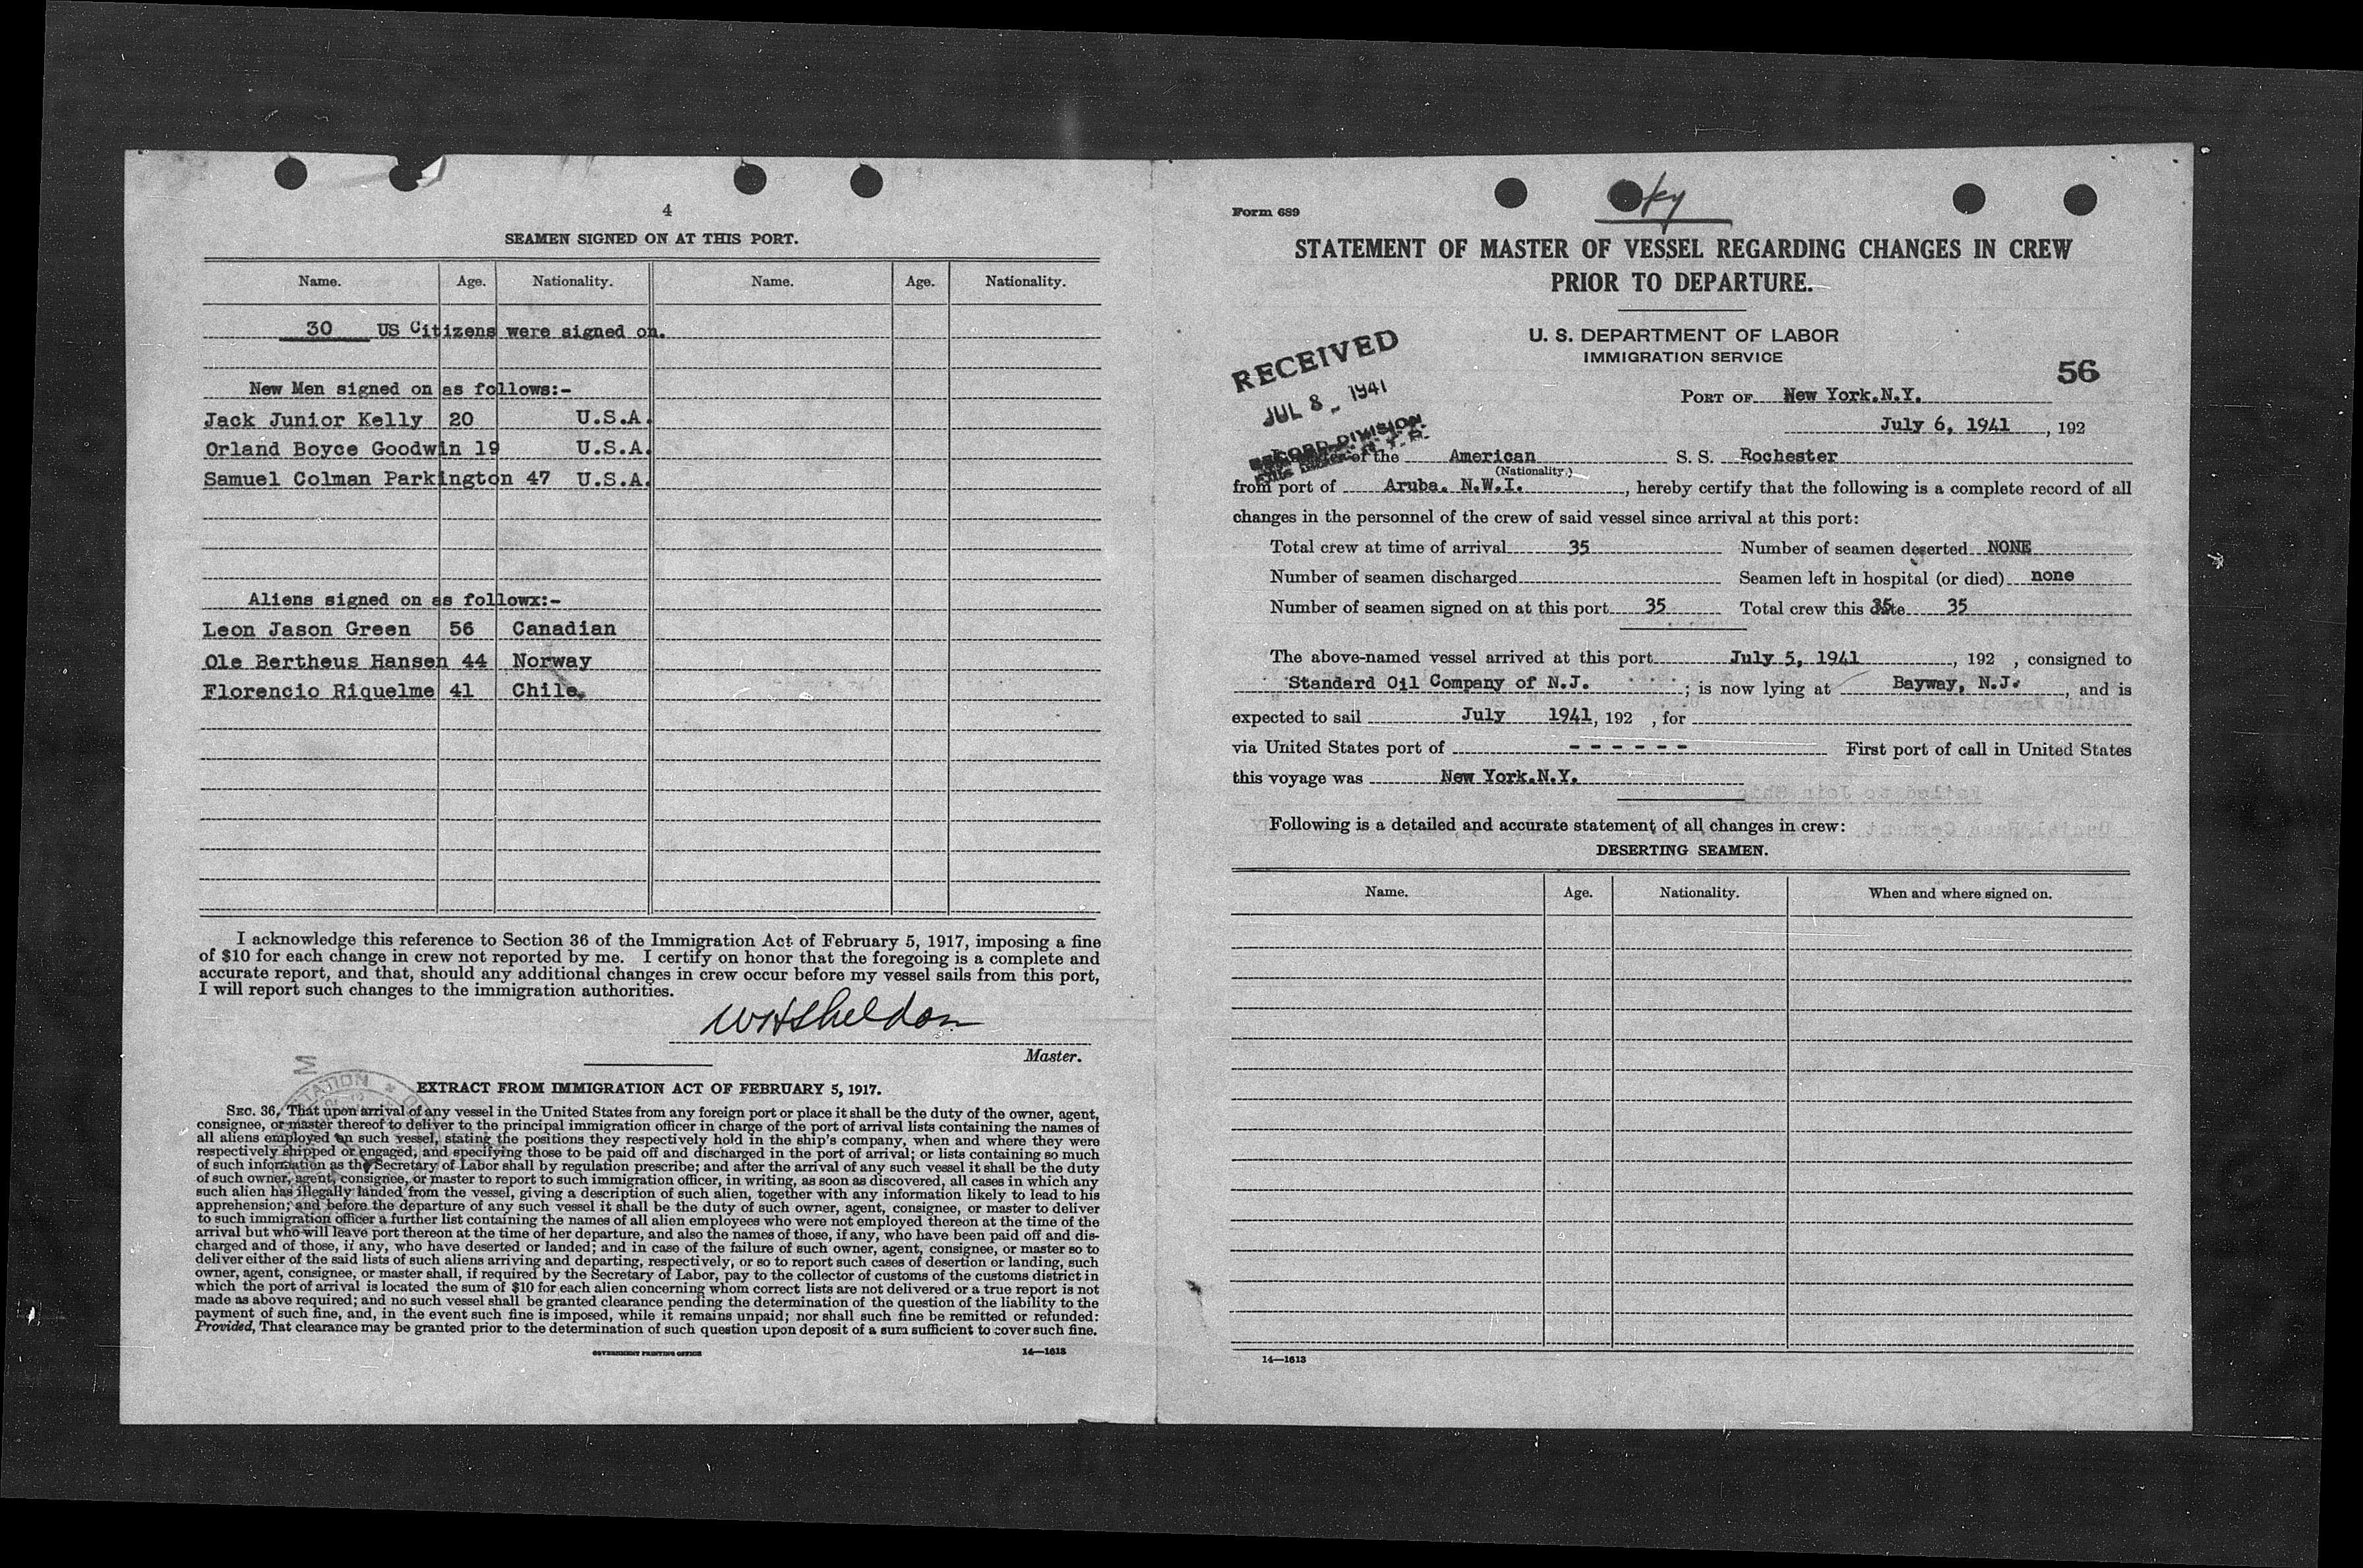 4
SEAMEN SIGNED ON AT THIS PORT.
Name. Age. Nationality. Name. Age. Nationality.
30 US Citizens were signed on.
New Men signed on as follows:-
Jack Junior Kelly 20 U.S.A.
Orland Boyce Goodwin 19 U.S.A.
Samuel Colman Parkington 47 U.S.A.
Aliens signed on as followx:-
Leon Jason Green 56 Canadian
Ole Bertheus Hansen 44 Norway
Florencio Riquelme 41 Chile.
I acknowledge this reference to Section 36 of the Immigration Act of February 5, 1917, imposing a fine
of $10 for each change in crew not reported by me. I certify on honor that the foregoing is a complete and
accurate report, and that, should any additional changes in crew occur before my vessel sails from this port,
I will report such changes to the immigration authorities.
WHSheldon
Master.
EXTRACT FROM IMMIGRATION ACT OF FEBRUARY 5, 1917.
SEC. 36. That upon arrival of any vessel in the United States from any foreign port or place it shall be the duty of the owner, agent,
consignee, or master thereof to deliver to the principal immigration officer in charge of the port of arrival lists containing the names of
all aliens employed on such vessel, stating the positions they respectively hold in the ship's company, when and where they were
respectively shipped or engaged, and specifying those to be paid off and discharged in the port of arrival; or lists containing so much
of such information as the Secretary of Labor shall by regulation prescribe; and after the arrival of any such vessel it shall be the duty
of such owner, agent, consignee, or master to report to such immigration officer, in writing, as soon as discovered, all cases in which any
such alien has illegally landed from the vessel, giving a description of such alien, together with any information likely to lead to his
apprehension; and before the departure of any such vessel it shall be the duty of such owner, agent, consignee, or master to deliver
to such immigration officer a further list containing the names of all alien employees who were not employed thereon at the time of the
arrival but who will leave port thereon at the time of her departure, and also the names of those, if any, who have been paid off and dis-
charged and of those, if any, who have deserted or landed; and in case of the failure of such owner, agent, consignee, or master so to
deliver either of the said lists of such aliens arriving and departing, respectively, or so to report such cases of desertion or landing, such
owner, agent, consignee, or master shall, if required by the Secretary of Labor, pay to the collector of customs of the customs district in
which the port of arrival is located the sum of $10 for each alien concerning whom correct lists are not delivered or a true report is not
made as above required; and no such vessel shall be granted clearance pending the determination of the question of the liability to the
payment of such fine, and, in the event such fine is imposed, while it remains unpaid; nor shall such fine be remitted or refunded:
Provided, That clearance may be granted prior to the determination of such question upon deposit of a sum sufficient to cover such fine.
GOVERNMENT PRINTING OFFICE 14—1613
Form 689
STATEMENT OF MASTER OF VESSEL REGARDING CHANGES IN CREW
PRIOR TO DEPARTURE.
U. S. DEPARTMENT OF LABOR
IMMIGRATION SERVICE
RECEIVED
JUL 8 - 1941
RECORD DIVISION
56
PORT OF New York.N.Y.
July 6, 1941, 192
of the American S. S. Rochester
(Nationality)
from port of Aruba. N.W.I., hereby certify that the following is a complete record of all
changes in the personnel of the crew of said vessel since arrival at this port:
Total crew at time of arrival 35 Number of seamen deserted NONE
Number of seamen discharged Seamen left in hospital (or died) none
Number of seamen signed on at this port 35 Total crew this date 35 35
The above-named vessel arrived at this port July 5, 1941, 192 , consigned to
Standard Oil Company of N.J. ; is now lying at Bayway, N.J., and is
expected to sail July 1941, 192 , for
via United States port of - - - - - - First port of call in United States
this voyage was New York.N.Y.
Following is a detailed and accurate statement of all changes in crew:
DESERTING SEAMEN.
Name. Age. Nationality. When and where signed on.
14—1613